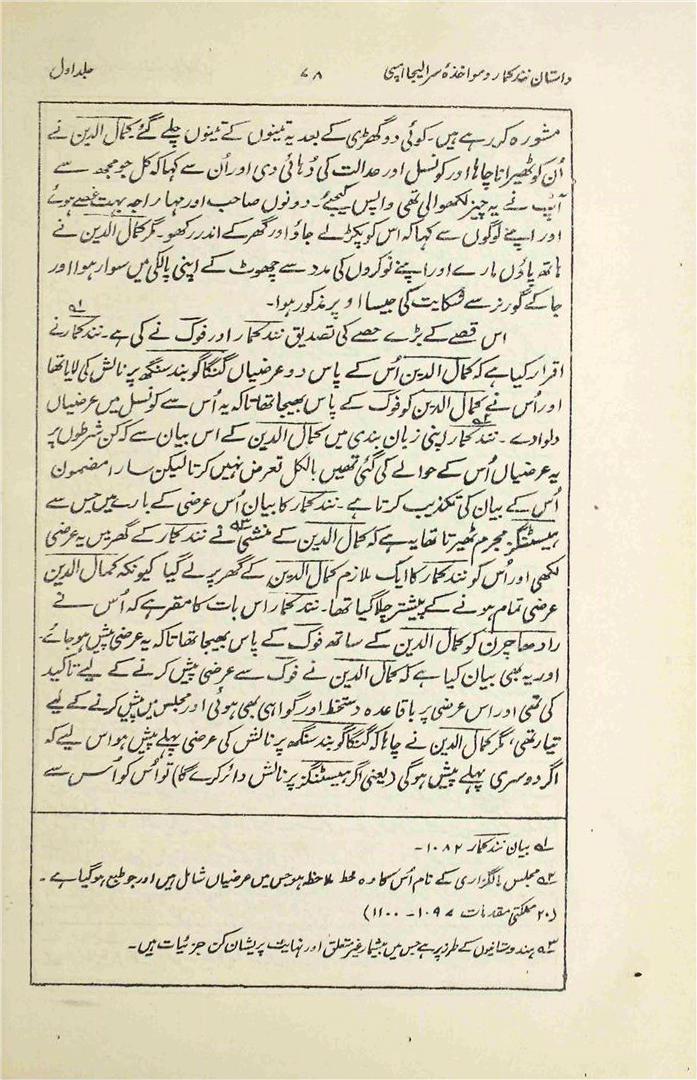 داستان نندکمار و مواخذۂ سر الیجا امپی ۷۸ جلد اول
مشورہ کر رہے ہیں۔ کوئی دو گھڑی کے بعد یہ تینوں کے تینوں چلے گئے کمال الدین نے
اُن کو ٹھیرانا چاہا اور کونسل اور عدالت کی دُہائی دی اور اُن سے کہا کہ کل جو مجھ سے
آپ نے یہ چیز لکھوالی تھی واپس کیجئے۔ دونوں صاحب اور مہاراجہ بہت غصے ہوئے
اور اپنے لوگوں سے کہا کہ اس کو پکڑ لے جاؤ اور گھر کے اندر رکھو۔ مگر کمال الدین نے
ہاتھ پاؤں مارے اور اپنے نوکروں کی مدد سے چھوٹ کے اپنی پالکی میں سوار ہوا اور
جا کے گورنر سے شکایت کی جیسا اوپر مذکور ہوا۔
اس قصے کے بڑے حصے کی تصدیق نندکمار اور فوک نے کی ہے۔ نندکمار نے ۱؎
اقرار کیا ہے کہ کمال الدین اُس کے پاس دو عرضیاں گنگا گوبند سنگھ پر نالش کی لایا تھا
اور اُس نے کمال الدین کو فوک کے پاس بھیجا تھا تاکہ یہ اُس سے کونسل میں عرضیاں
دلوا دے۔ نندکمار ۲؎ اپنی زبان بندی میں کمال الدین کے اس بیان سے کہ کن شرطوں پر
یہ عرضیاں اُس کے حوالے کی گئی تھیں بالکل تعرض نہیں کرتا لیکن سارا مضمون
اُس کے بیان کی تکذیب کرتا ہے۔ نندکمار کا بیان اُس عرضی کے بارے میں جس سے
ہیسٹنگز مجرم ٹھیرتا تھا یہ ہے کہ کمال الدین کے منشی ۳؎ نے نندکمار کے گھر میں یہ عرضی
لکھی اور اُس کو نندکمار کا ایک ملازم کمال الدین کے گھر پر لے گیا کیونکہ کمال الدین
عرضی تمام ہونے کے پیشتر چلا گیا تھا۔ نندکمار اس بات کا مقر ہے کہ اُس نے
رادھا چرن کو کمال الدین کے ساتھ فوک کے پاس بھیجا تھا تاکہ یہ عرضی پیش ہو جائے۔
اور یہ بھی بیان کیا ہے کہ کمال الدین نے فوک سے عرضی پیش کرنے کے لیے تاکید
کی تھی اور اس عرضی پر باقاعدہ دستخط اور گواہی بھی ہوئی اور مجلس میں پیش کرنے کے لیے
تیار تھی، مگر کمال الدین نے چاہا کہ گنگا گوبند سنگھ پر نالش کی عرضی پہلے پیش ہو اس لیے کہ
اگر دوسری پہلے پیش ہوگی (یعنی اگر ہیسٹنگز پر نالش دائر کرے گا) تو اُس کو اُس سے
۱؎ بیان نندکمار ۱۰۸۲۔
۲؎ مجلس مالگزاری کے نام اُس کا وہ خط ملاحظہ ہو جس میں عرضیاں شامل ہیں اور جو طبع ہو گیا ہے۔
(۲۰ ملکتی مقدمات ۱۰۹۷ - ۱۱۰۰)
۳؎ ہندوستانیوں کے طرز پر ہے جس میں بیشمار غیر متعلق اور نہایت پریشان کن جزئیات ہیں۔